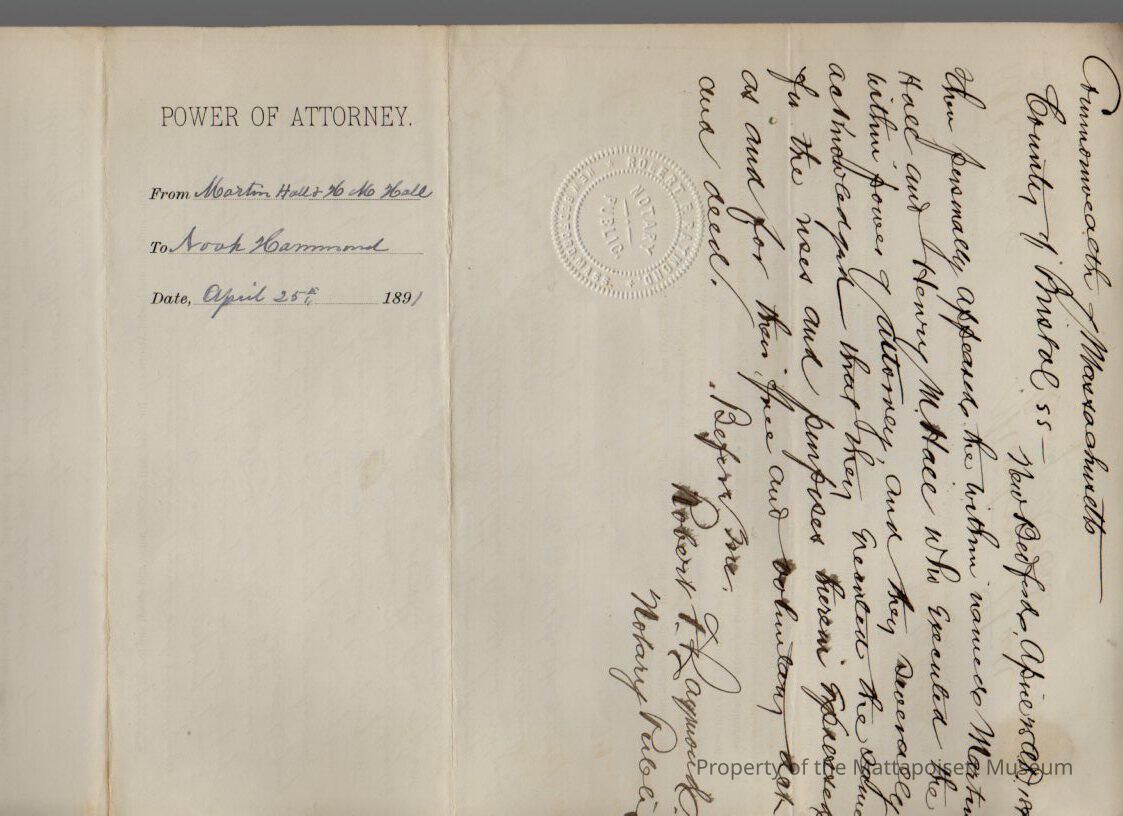 POWER OF ATTORNEY.
From Martin Hall & H M Hall
To Noah Hammond
Date, April 25th 1891
Commonwealth of Massachusetts
County of Bristol ss — New Bedford, April
Then personally appeared, the within named Martin
Hall and Henry M. Hall who executed the
within power of attorney, and they severally
acknowledged that they executed the same
for the uses and purposes therein expressed
as and for their free and voluntary act
and deed.
Before me.
Robert F. Raymond.
Notary Public
ROBERT F. RAYMOND
NOTARY
PUBLIC
Property of the Mattapoisett Museum